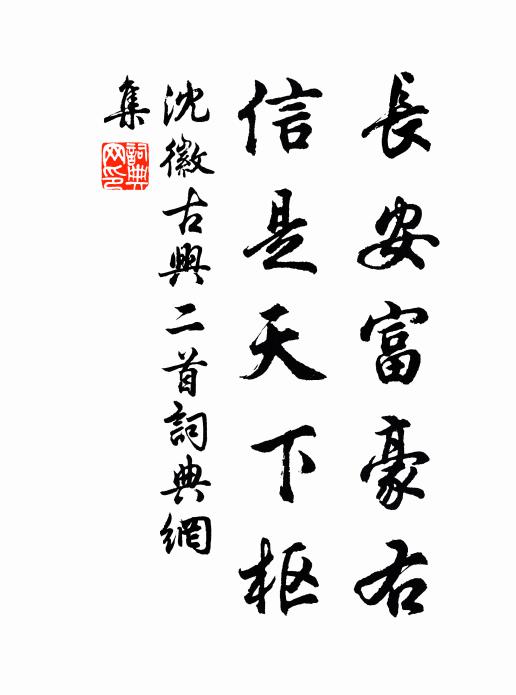 長安富豪右
信是天下枢
沈徽古興二首詞典網
集
詞典网印